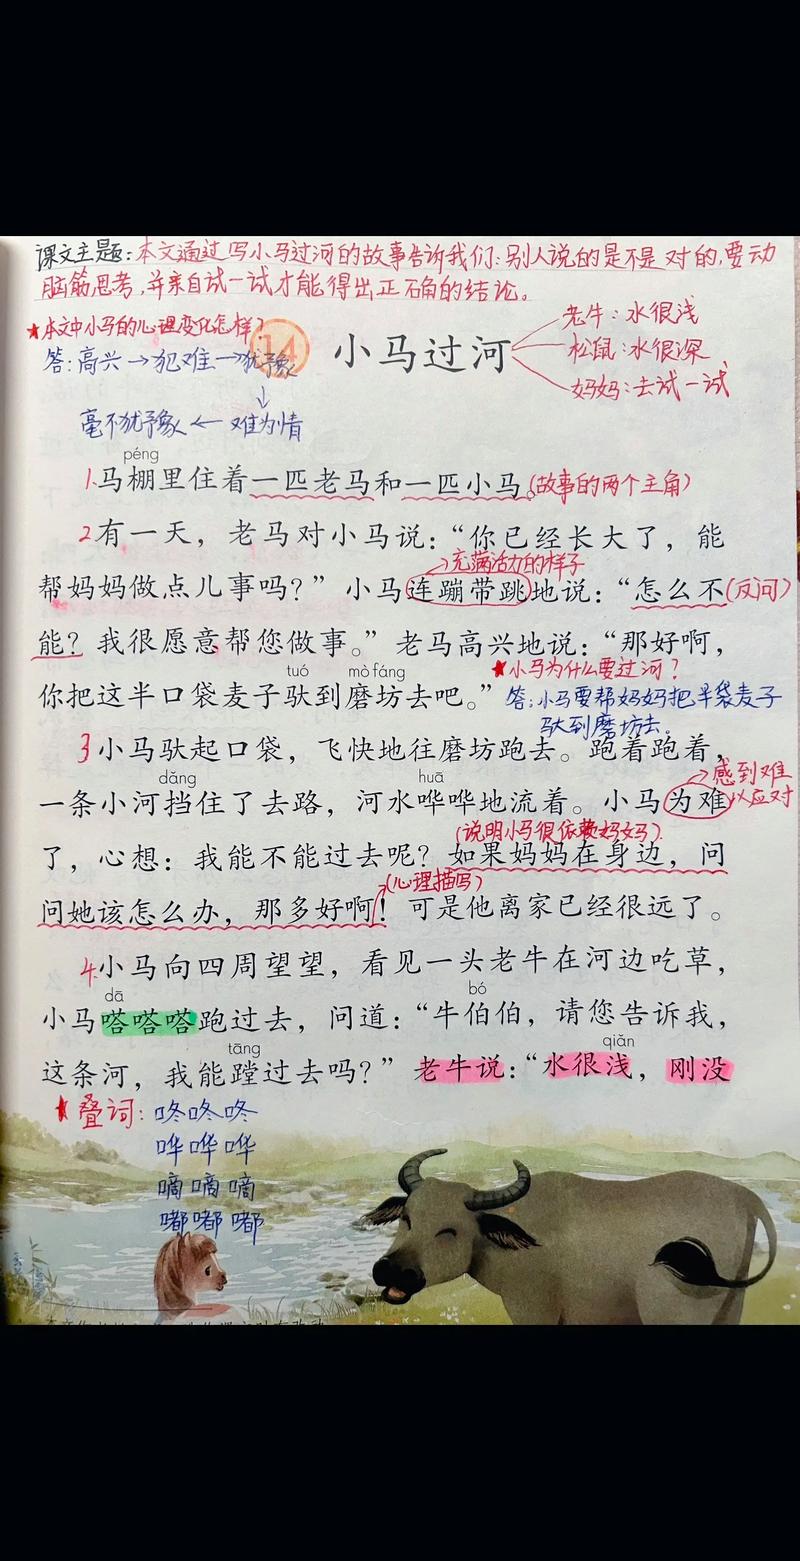 课文主题:本文通过写小马过河的故事告诉我们:别人说的是不是对的,要动
脑筋思考,并亲自试一试才能得出正确的结论。
★本文中小马的心理变化怎样?
答:高兴→犯难→犹豫
↓
毫不犹豫←难为情
14
小马过河
老牛:水很浅
松鼠:水很深
妈妈:去试一试
péng
1.马棚里住着一匹老马和一匹小马。(故事的两个主角)
2有一天,老马对小马说:“你已经长大了,能
→充满活力的样子
帮妈妈做点儿事吗?”小马连蹦带跳地说:“怎么不(反问)
能?我很愿意帮您做事。”老马高兴地说:“那好啊,
tuó mò fáng
★小马为什么要过河?
你把这半口袋麦子驮到磨坊去吧。”
答:小马要帮妈妈把半袋麦子
驮到磨坊去。
3小马驮起口袋,飞快地往磨坊跑去。跑着跑着,
dǎng huā
→感到难
以应对
一条小河挡住了去路,河水哗哗地流着。小马为难
(说明小马很依赖妈妈)
了,心想:我能不能过去呢?如果妈妈在身边,问
(心理描写)
问她该怎么办,那多好啊!可是他离家已经很远了。
4.小马向四周望望,看见一头老牛在河边吃草,
dā bó
小马嗒嗒嗒跑过去,问道:“牛伯伯,请您告诉我,
tāng qiǎn
这条河,我能蹚过去吗?”老牛说:“水很浅,刚没
★叠词:咚咚咚
哗哗哗
嘀嘀嘀
嘟嘟嘟